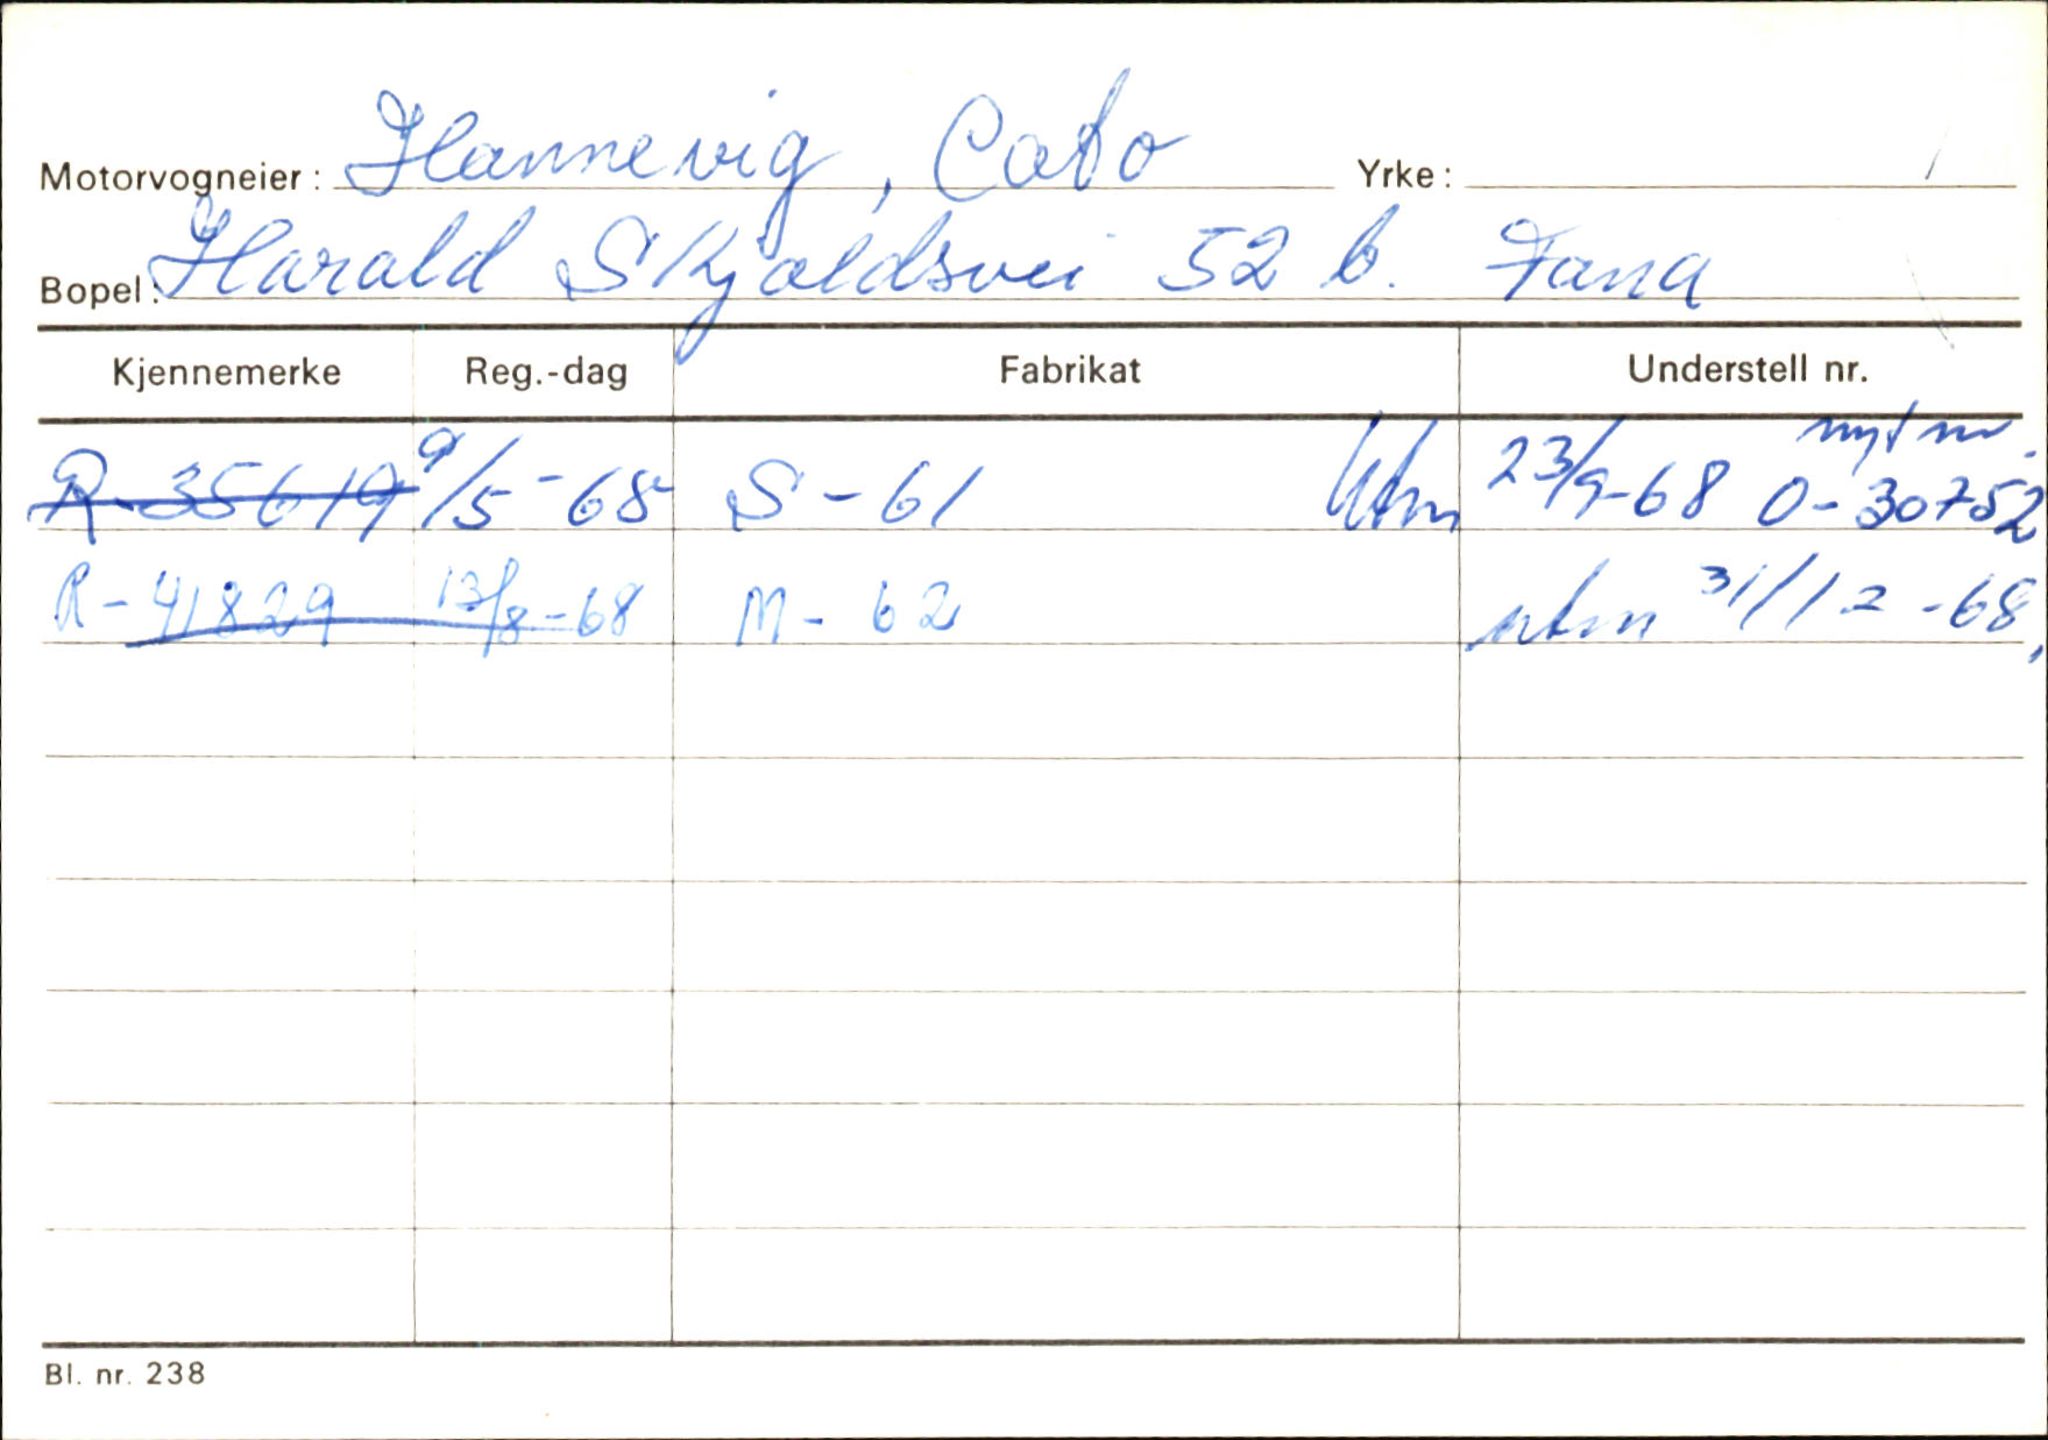 Motorvogneier: Hannevig, Cato Yrke:
Bopel: Harald Skjoldsvei 52 b. Fana
Kjennemerke Reg.-dag Fabrikat Understell nr.
R-35619 9/5-68 S-61 Utm 23/9-68 nytt nr. O-30752
R-41829 13/8-68 M-62 utm 31/12-68,
Bl. nr. 238